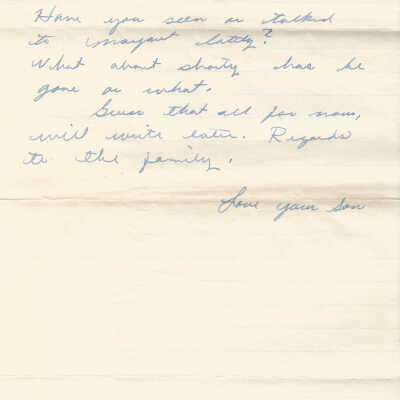 Have you seen or talked
to margaret lately?
What about shorty has he
gone or what.
Guess that all for now,
will write later. Regards
to the family.
Love your Son